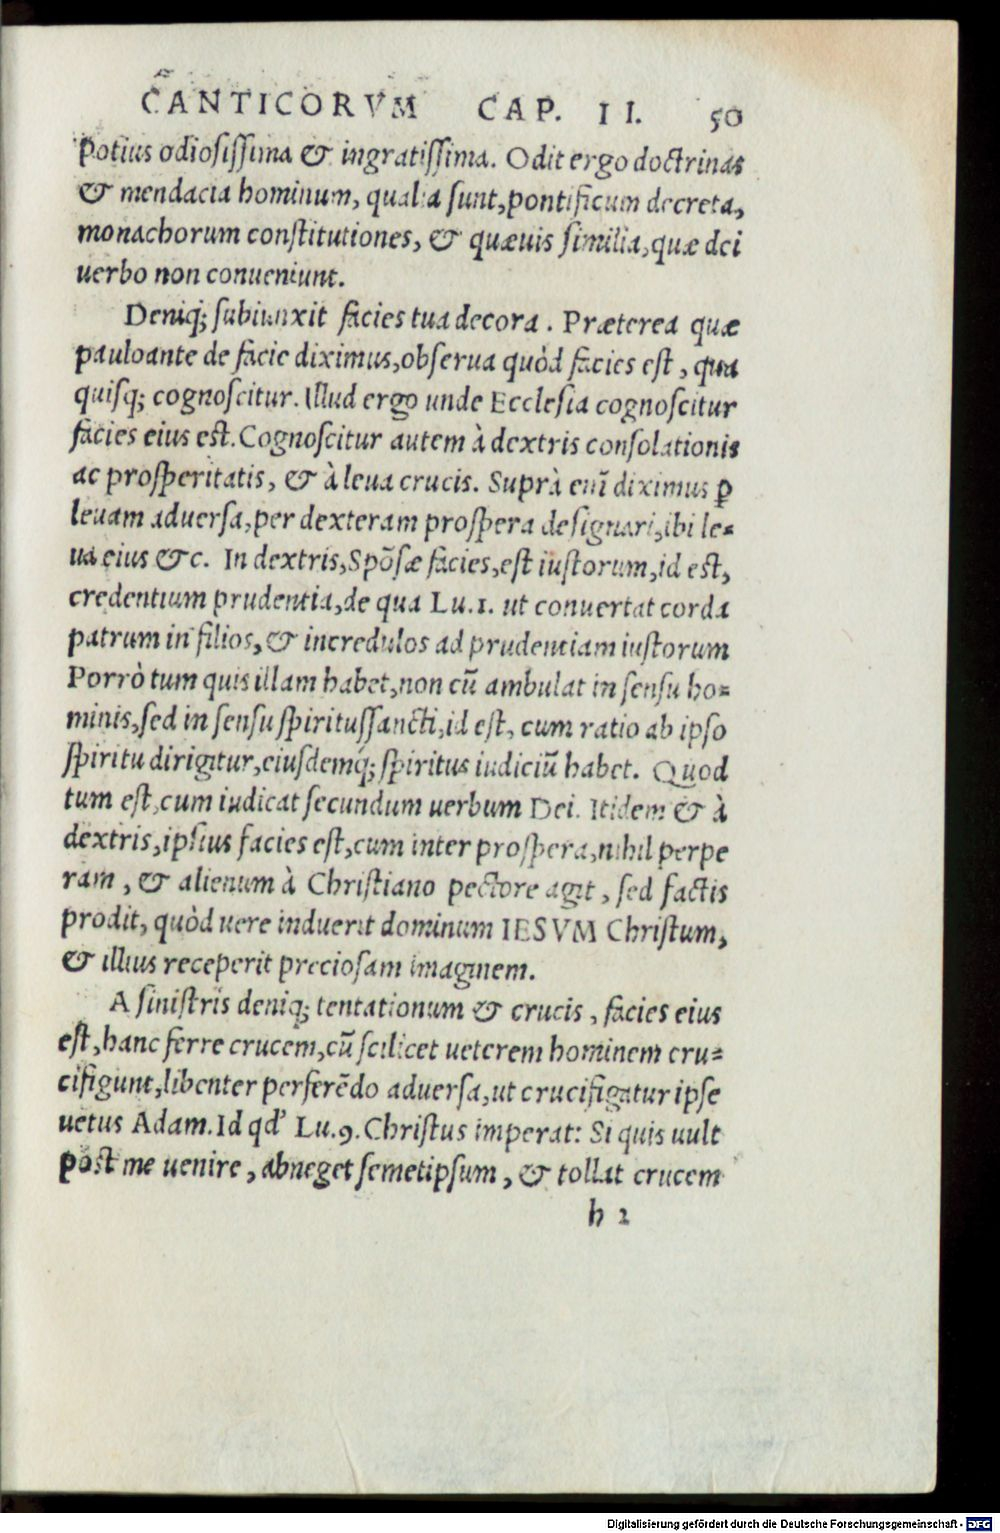 CANTICORVM CAP. II. 50
Potius odiosissima & ingratissima. Odit ergo doctrinas
& mendacia hominum, qualia sunt, pontificum decreta,
monachorum constitutiones, & quæuis similia, quæ dei
uerbo non conueniunt.
Deniq; subiunxit facies tua decora. Præterea quæ
pauloante de facie diximus, obserua quòd facies est, qua
quisq; cognoscitur. Illud ergo unde Ecclesia cognoscitur
facies eius est. Cognoscitur autem à dextris consolationis
ac prosperitatis, & à leua crucis. Suprà em̃ diximus ꝑ
leuam aduersa, per dexteram prospera designari, ibi le-
ua eius &c. In dextris, Spõsæ facies, est iustorum, id est,
credentium prudentia, de qua Lu.1. ut conuertat corda
patrum in filios, & incredulos ad prudentiam iustorum
Porrò tum quis illam habet, non cũ ambulat in sensu ho-
minis, sed in sensu spiritussancti, id est, cum ratio ab ipso
spiritu dirigitur, eiusdemq́; spiritus iudiciũ habet. Quod
tum est, cum iudicat secundum uerbum Dei. Itidem & à
dextris, ipsius facies est, cum inter prospera, nihil perpe
ram, & alienum à Christiano pectore agit, sed factis
prodit, quòd uere induerit dominum IESVM Christum,
& illius receperit preciosam imaginem.
A sinistris deniq; tentationum & crucis, facies eius
est, hanc ferre crucem, cũ scilicet ueterem hominem cru-
cifigunt, libenter perferẽdo aduersa, ut crucifigatur ipse
uetus Adam. Id qd' Lu.9. Christus imperat: Si quis uult
post me uenire, abneget semetipsum, & tollat crucem
h 2
Digitalisierung gefördert durch die Deutsche Forschungsgemeinschaft - DFG